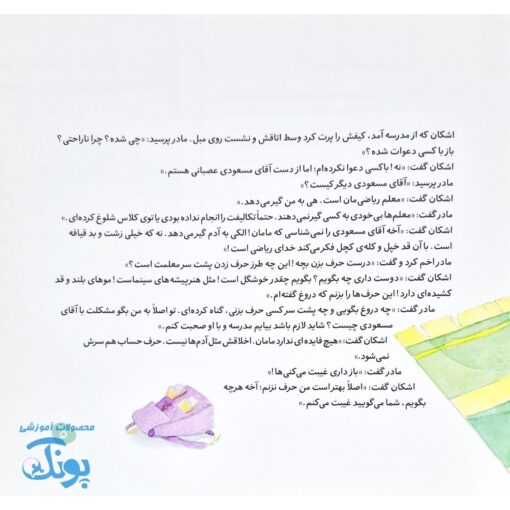 اشکان که از مدرسه آمد، کیفش را پرت کرد وسط اتاقش و نشست روی مبل. مادر پرسید: «چی شده؟ چرا ناراحتی؟
باز با کسی دعوات شده؟»
اشکان گفت: «نه! با کسی دعوا نکرده‌ام؛ اما از دست آقای مسعودی عصبانی هستم.»
مادر پرسید: «آقای مسعودی دیگر کیست؟»
اشکان گفت: «معلم ریاضی‌مان است. هی به من گیر می‌دهد.»
مادر گفت: «معلم‌ها بی‌خودی به کسی گیر نمی‌دهند. حتماً تکالیفت را انجام نداده بودی یا توی کلاس شلوغ کرده‌ای.»
اشکان گفت: «آخه آقای مسعودی را نمی‌شناسی که مامان! الکی به آدم گیر می‌دهد. نه که خیلی زشت و بد قیافه
است. با آن قد خپل و کله‌ی کچل فکر می‌کند خدای ریاضی است!»
مادر اخم کرد و گفت: «درست حرف بزن بچه! این چه طرز حرف زدن پشت سر معلمت است؟»
اشکان گفت: «دوست داری چه بگویم؟ بگویم چقدر خوشگل است! مثل هنرپیشه‌های سینماست! موهای بلند و قد
کشیده‌ای دارد! این حرف‌ها را بزنم که دروغ گفته‌ام.»
مادر گفت: «چه دروغ بگویی و چه پشت سر کسی حرف بزنی، گناه کرده‌ای. تو اصلاً به من بگو مشکلت با آقای
مسعودی چیست؟ شاید لازم باشد بیایم مدرسه و با او صحبت کنم.»
اشکان گفت: «هیچ فایده‌ای ندارد مامان. اخلاقش مثل آدم‌ها نیست. حرف حساب هم سرش
نمی‌شود.»
مادر گفت: «باز داری غیبت می‌کنی‌ها!»
اشکان گفت: «اصلاً بهتر است من حرف نزنم! آخه هرچه
بگویم، شما می‌گویید غیبت می‌کنم.»
محصولات آموزشی
پونک